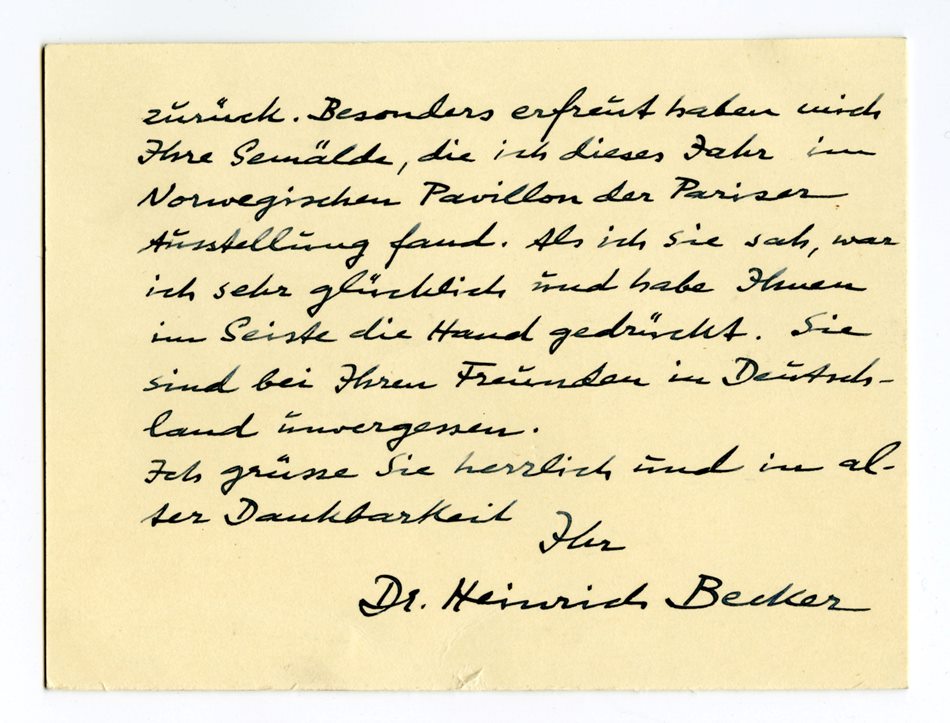 zurück. Besonders erfreut haben mich
Ihre Gemälde, die ich dieses Jahr im
Norwegischen Pavillon der Pariser
Ausstellung fand. Als ich sie sah, war
ich sehr glücklich und habe Ihnen
im Geiste die Hand gedrückt. Sie
sind bei Ihren Freunden in Deutsch-
land unvergessen.
Ich grüsse Sie herzlich und in al-
ter Dankbarkeit
Ihr
Dr. Heinrich Becker